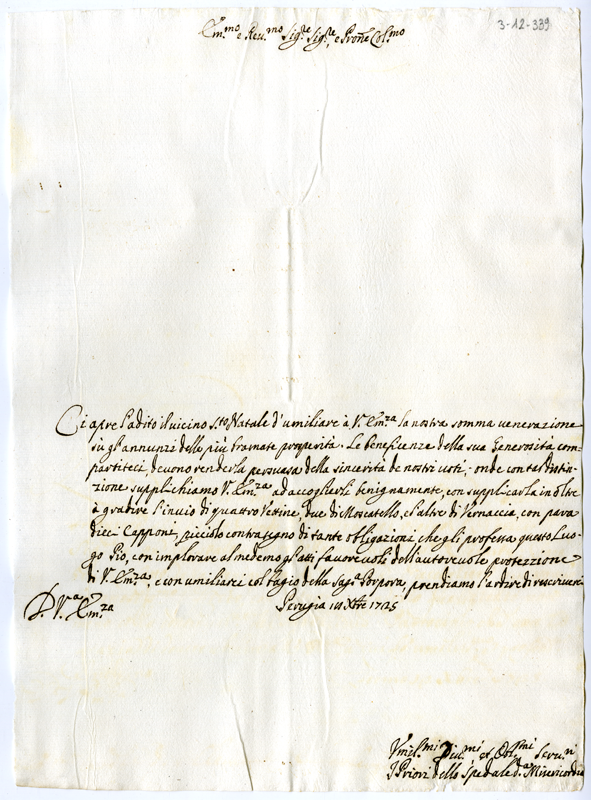 3-12-339
Em.mo e Reu.mo Sig.re Sig.re, e Pron̄e Col.mo
Ci apre l'adito il uicino S.to Natale d'umiliare à V. Em.za la nostra somma uenerazione
sù gl'annunzi delle più bramate prosperità. Le beneficenze della sua Generosità com=
partiteci, deuono renderla persuasa della sincerità de nostri uoti, onde con tal
zione supplichiamo V. Em.za ad accoglierli benignamente, con supplicarla inoltre
à gradire l'inuio di quattro Vettine, due di Moscatello, e l'altre di Vernaccia, con para
dieci Capponi, picciolo contrasegno di tante obligazioni, che gli professa questo Luo-
go Pio, con implorare al medemo gl'atti fauoreuoli dell'autoreuole protezzione
di V. Em.za, e con umiliarci col bagio della Sag.a Porpora, prendiamo l'ardire di rescriuerci
D. V.a Em.za
Perugia Xbre 1725
Vmil.mi Diu.mi, et Obl.mi Seru.ri
I Priori dello Spedale d.a Misericordia